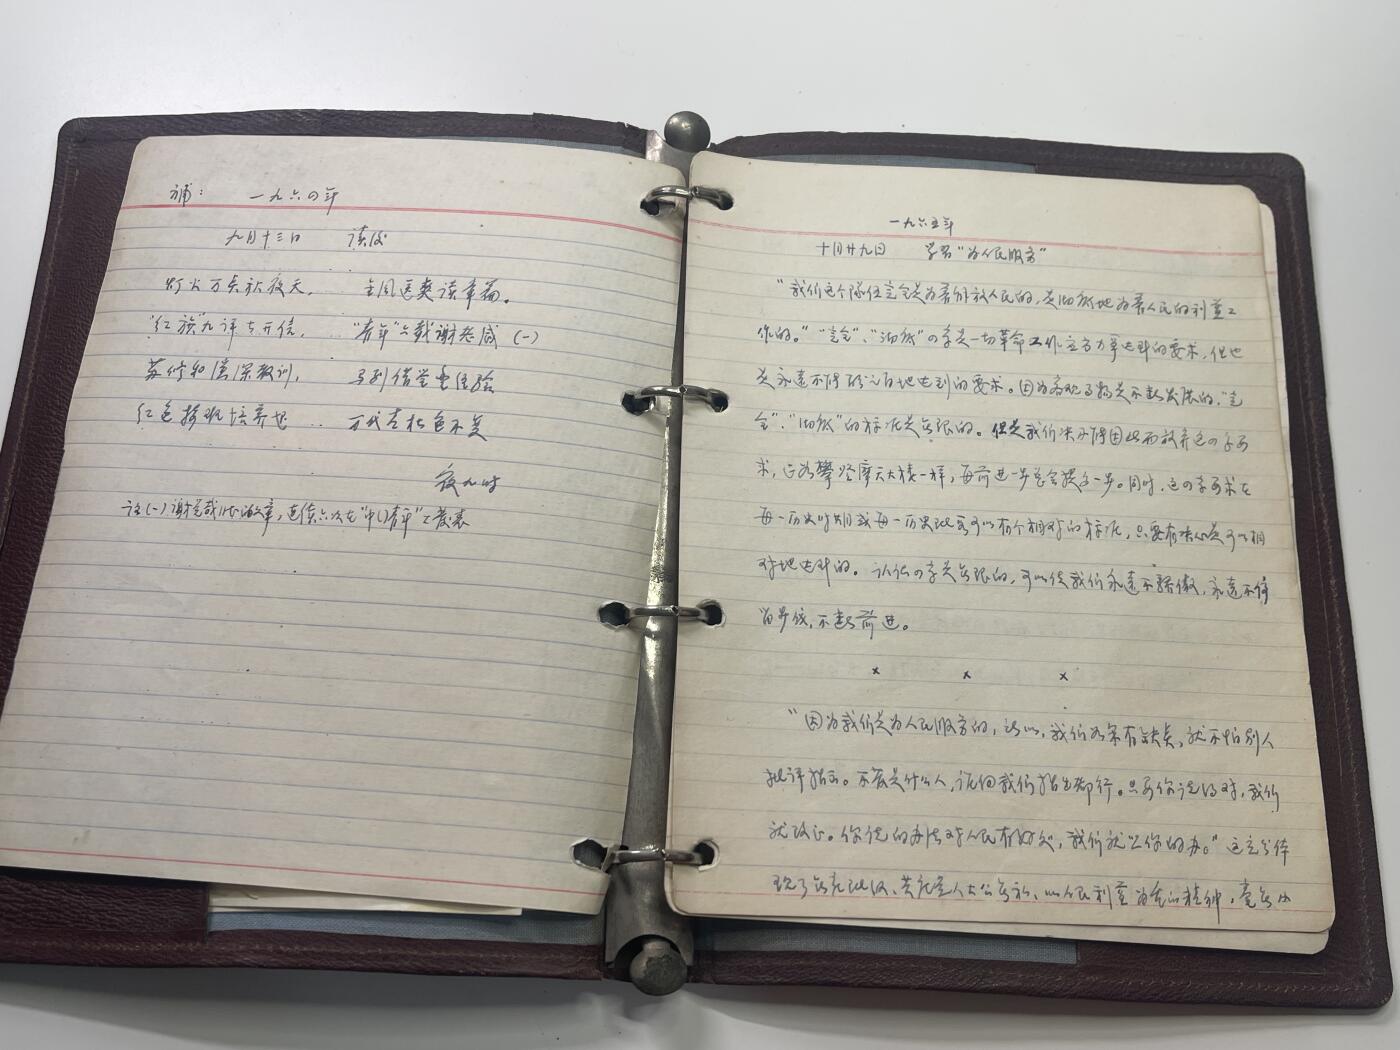 补： 一九六四年
九月十三日 读后
灯火万点秋夜天， 全国医爽读章篇。
“红旗”九评 “青年”六载谢老咸（一）
苏修 教训， 马列 经验
红色接班培养起 万代 色不变
夜九时
注（一）谢老 的文章，连续六次在“中国青年”上发表
一九六五年
十月廿九日 学习“为人民服务”
“我们这个队伍完全是为着解放人民的，是彻底地为着人民的利益工
作的。”“完全”、“彻底”四字是一切革命工作应当力争达到的要求，但也
是永远不得 百地达到的要求。因为客观事物是不断发展的，“完
全”、“彻底”的标准是无限的。但是我们决不得因此而放弃这四字要
求，正如攀登摩天大楼一样，每前进一步总会提高一步。同时，这四字要求在
每一历史时期或每一历史 可以有个相对的标准，只要有决心是可以相
对地达到的。认价四字是无限的，可以使我们永远不骄傲，永远不停
留界线，不断前进。
x x x
“因为我们是为人民服务的，所以，我们如果有缺点，就不怕别人
批评指出。不管是什么人，谁向我们指出都行。只要你说得对，我们
就改正。你说的办法对人民有好处，我们就照你的办。”这充分体
现了无产阶级、共产党人大公无私、以人民利益为重的精神，毫无